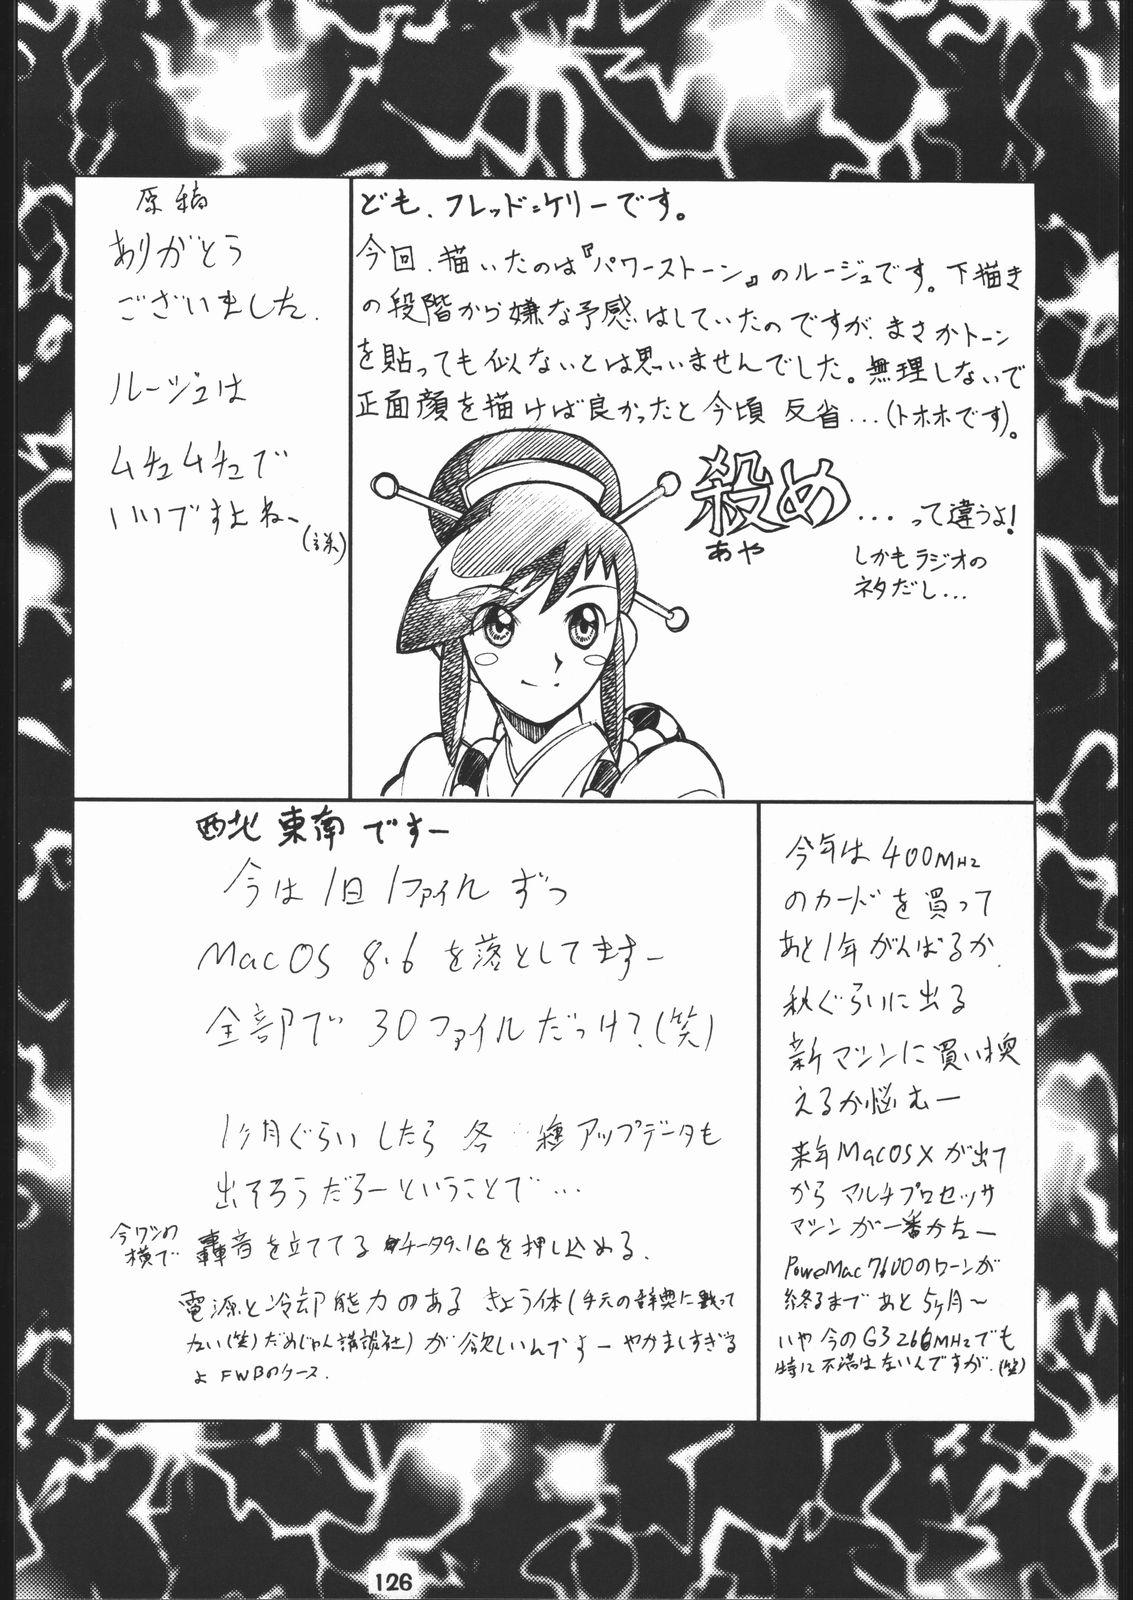 ども、フレッド=ケリーです。
今回、描いたのは『パワーストーン』のルージュです。下描き
の段階から嫌な予感はしていたのですが、まさかトーン
を貼っても似ないとは思いませんでした。無理しないで
正面顔を描けば良かったと今頃 反省...(トホホです)。
殺め
あや
...って違うよ!
しかもラジオの
ネタだし...
原稿
ありがとう
ございました.
ルージュは
ムチュムチュで
いいですよねー
西北 東南 ですー
今は1日1ファイル ずつ
MacOS 8.6 を落としてますー
全部で 30ファイルだっけ?(笑)
1ヶ月ぐらいしたら 各種アップデータも
出そろうだろーということで...
今ワシの
横で
轟音を立ててる チータ9.1Gを押し込める、
電源と冷却能力のある きょう体(手元の辞典に載って
ない(笑)だめじゃん講談社)が欲しいんですーやかましすぎる
よ FWBのケース.
今年は 400MHz
のカードを買って
あと1年がんばるか、
秋ぐらいに出る
新マシンに買い換
えるか悩むー
来年MacOSXが出て
から マルチプロセッサ
マシンが一番かなー
PowerMac7600のローンが
終るまで あと 5ヶ月〜
いや今のG3 266MHzでも
特に不満はないんですが.(笑)
126